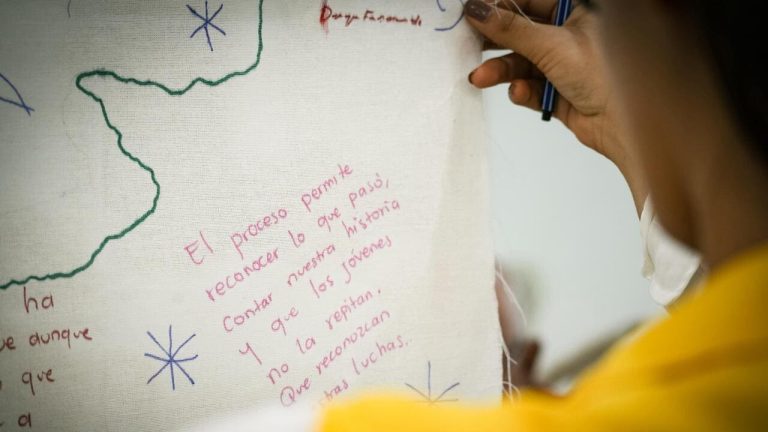 El proceso permite
reconocer lo que pasó,
contar nuestra historia
y que los jóvenes
no la repitan.
Que reconozcan
luchas.
ha
aunque
que
a